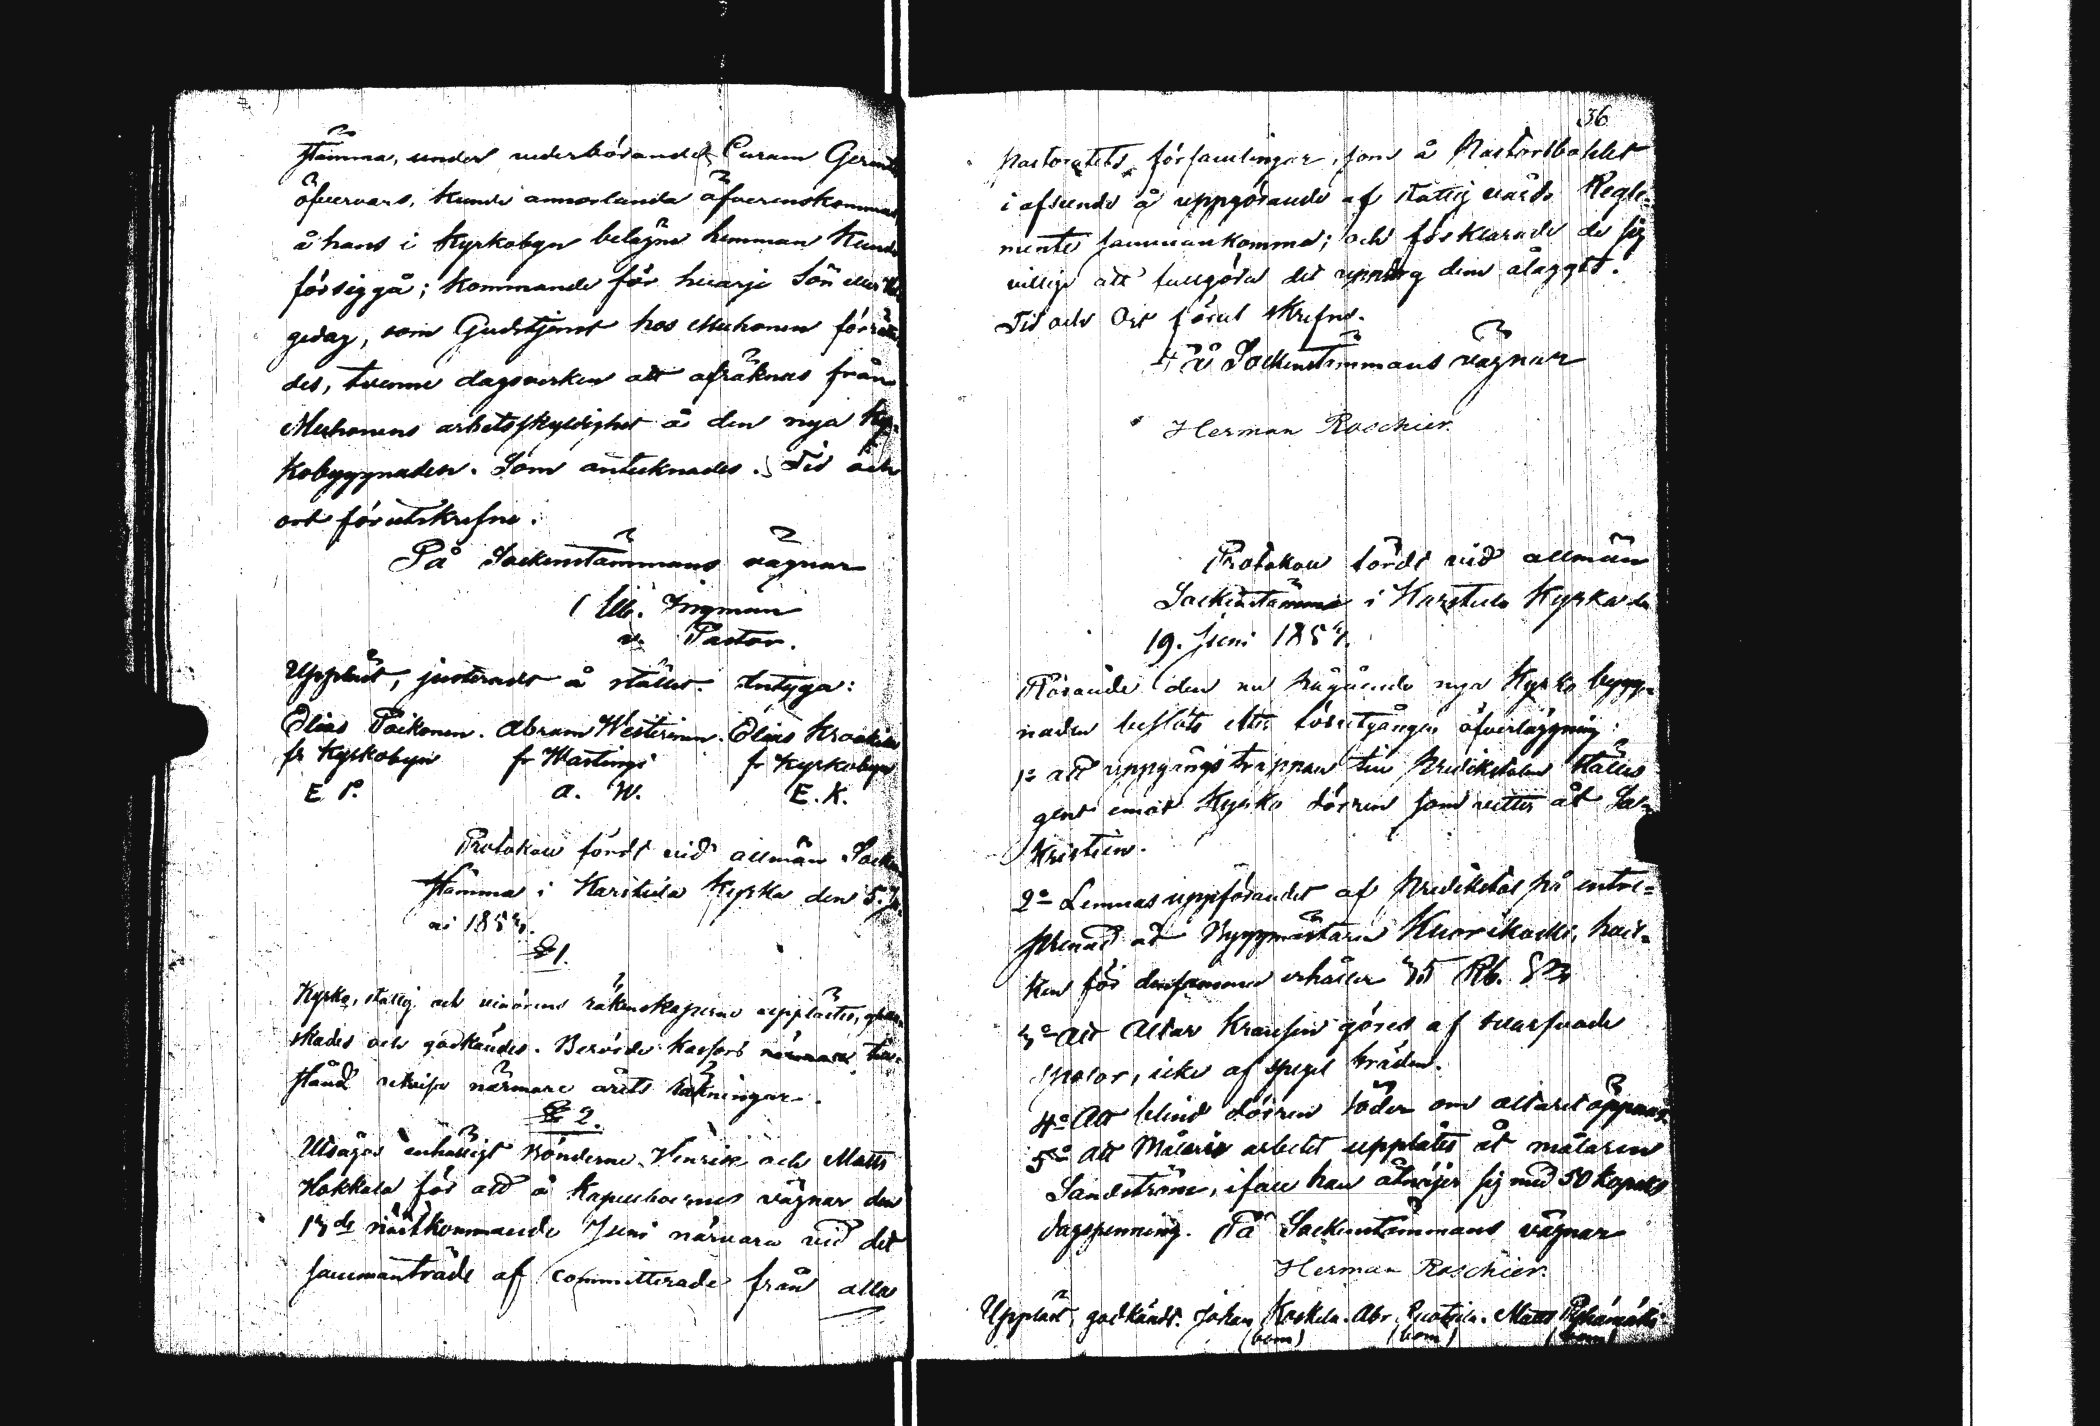 stämma, under vederbörandes Curam Gerentis
öfvervaro, kunde annorlunda öfverenskommas
å hans i Kyrkobyn belägna hemman kunde
försiggå; kommande för hvarje Sön eller Hel-
gedag, som Gudstjenst hos Muhonen förrätta-
des, tvenne dagsverken att afräknas från
Muhonens arbetsskyldighet å den nya Kyr-
kobyggnaden. Som antecknades. Tid och
ort förutskrefne.
På Sockenstämmans vägnar
Ingman
v. Pastor.
Uppläst, justeradt å stället. Intyga:
Elias Poikonen. Abram Westerinen. Elias Krookila
fr Kyrkobyn fr Wastingi fr Kyrkobyn
E P. A. W. E. K.
Protokoll fördt vid allmän Socken
stämma i Karstula Kyrka den 5. Ju-
ni 1854.
§ 1.
Kyrko, fattig och räkenskaperne upplästes, gran-
skades och godkändes. Berörde Kassors till-
stånd utvisa närmare årets räkningar.
§ 2.
Utsågos enhälligt Bönderne Henrik och Matts
Hokkala för att å Kapellboernes vägnar den
13de nästkommande Juni närvara vid det
sammanträde af Committerade från alla
36
Pastoratets församlingar, som å Pastorsbohlet
i afseende å uppgörande af fattig vårds Regle-
mente sammankomma; och förklarade de sig
villige att fullgöra det uppdrag dem ålaggts.
Tid och Ort förut skrefne.
På Sockenstämmans vägnar
Herman Roschier.
Protokoll fördt vid allmän
Sockenstämma i Karstula Kyrka den
19. Juni 1854.
Rörande den nu pågående nya Kyrko bygg-
naden beslöts efter föregången öfverläggning:
1o att uppgångs trappan till Predikstolen ställes
gent emot Kyrko dörren som vetter åt Sa-
kristien.
2o Lemnas uppförandet af Predikstol på entre-
prenad åt Byggmästaren Kuorikoski, hvil-
ken för densamma erhåller 35 Rb. Sr
3o Att Altar Kransen göres af svarfvade
spolar, icke af spegel bräden.
4o Att blind dörren söder om altaret öppnas.
5o Att Måleri arbetet upplåtes åt målaren
Sandström, ifall han åtnöjer sig med 50 kopeks
dagspenning. På Sockenstämmans vägnar
Herman Roschier.
Uppläst, godkändt. Johan Koskela. Abr. Matts
(bom) (bom) (bom)